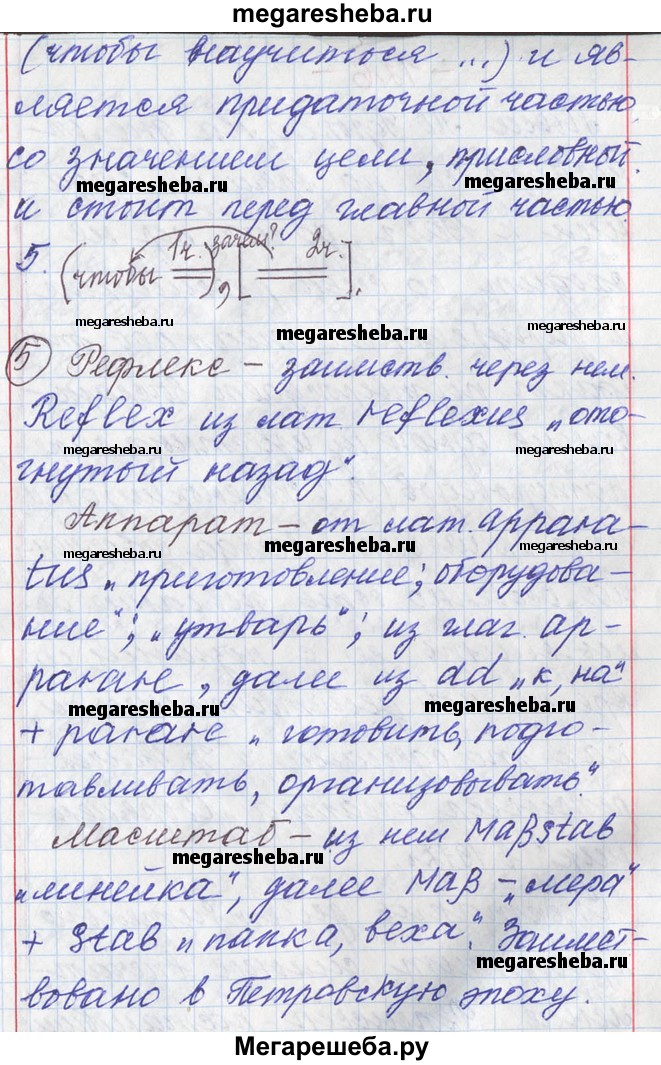 megaresheba.ru
(чтобы научиться ...) и яв-
ляется придаточной частью
со значением цели, присловной
megaresheba.ru megaresheba.ru
и стоит перед главной частью.
5. (чтобы 1ч. ), зачем? [ 2ч. ].
megaresheba.ru megaresheba.ru megaresheba.ru
5 Рефлекс – заимств. через нем.
Reflex из лат. reflexus „ото-
megaresheba.ru megaresheba.ru
гнутый назад".
Аппарат – от лат. appara-
megaresheba.ru megaresheba.ru
tus „приготовление; оборудова-
ние"; „утварь"; из глаг. ap-
parare, далее из ad „к, на"
megaresheba.ru megaresheba.ru
+ parare „готовить, подго-
тавливать, организовывать".
Масштаб – из нем Maßstab
megaresheba.ru megaresheba.ru
„линейка", далее Maß – „мера"
+ Stab „папка, веха". Заимст-
вовано в Петровскую эпоху.
Мегарешеба.ру